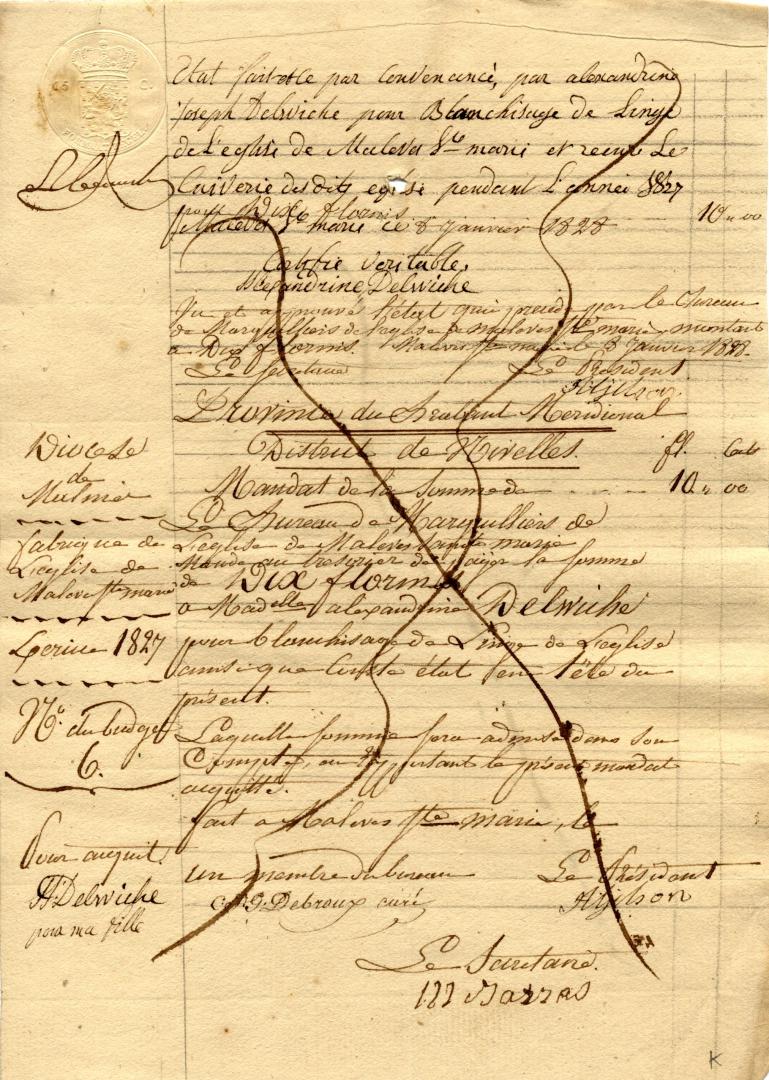 Etat fait et de par Convenance, par alexandrine
joseph Delwiche pour Blanchisage de Linge
de L'eglise de Maleves Ste marie et recure Le
des dits eglise pendant L'année 1827
pour dix florins 10 " 00
Maleves Ste marie ce 8 janvier 1828
Certifie veritable,
Alexandrine Delwiche
Vu et aprouvé l'état qui precede par le Bureau
de Marguilliers de l'eglise de maleves Ste marie, montant
a Dix florins. Maleves Ste marie le 8 Janvier 1828.
Le Président
Province du Brabant Meridional
District de Nivelles. fl. Cents
Mandat de la Somme de 10 " 00
Le Bureau de Marguilliers de
L'eglise de Maleves Sainte marie
Mande au tresorier de payer la somme
de Dix florins
a Madelle alexandrine Delwiche
pour blanchisage de Linge de L'eglise
ainsi que Conste état en tête du
présent.
Laquelle somme sera admise dans son
Compte, en rapportant le présent mandat
acquitté.
fait a Maleves Ste marie, le
un membre du bureau Le Président
Debroux curé
Le
Diocese
de
Malines
fabrique de
L'eglise de
Maleves Ste marie
1827
No. du budget
6.
Pour acquit.
Delwiche
pour ma fille
K